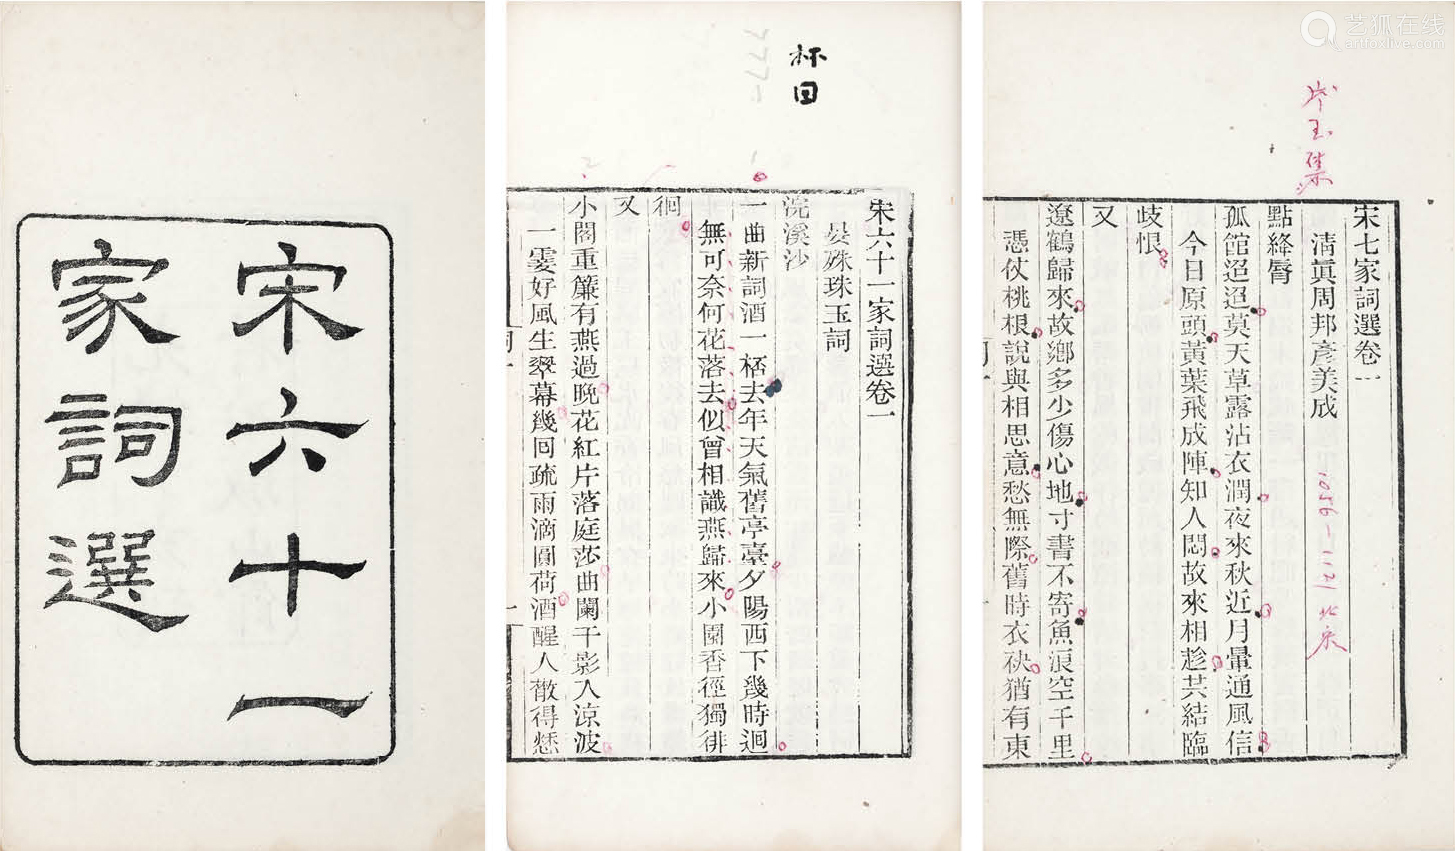 宋六十一
家詞選
杯
回
宋六十一家詞選卷一
晏殊珠玉詞
浣溪沙
一曲新詞酒一桮去年天氣舊亭臺夕陽西下幾時迴
無可奈何花落去似曾相識燕歸來小園香徑獨徘
徊
又
小閣重簾有燕過晚花紅片落庭莎曲闌干影入涼波
一霎好風生翠幕幾回疏雨滴圓荷酒醒人散得愁
艺狐在线
artfoxlive.com
片玉集
宋七家詞選卷一
清眞周邦彥美成
點絳脣
孤館迢迢莫天草露沾衣潤夜來秋近月暈通風信
今日原頭黃葉飛成陣知人悶故來相趁共結臨
歧恨
又
遼鶴歸來故鄉多少傷心地寸書不寄魚浪空千里
憑仗桃根說與相思意愁無際舊時衣袂猶有東
北京